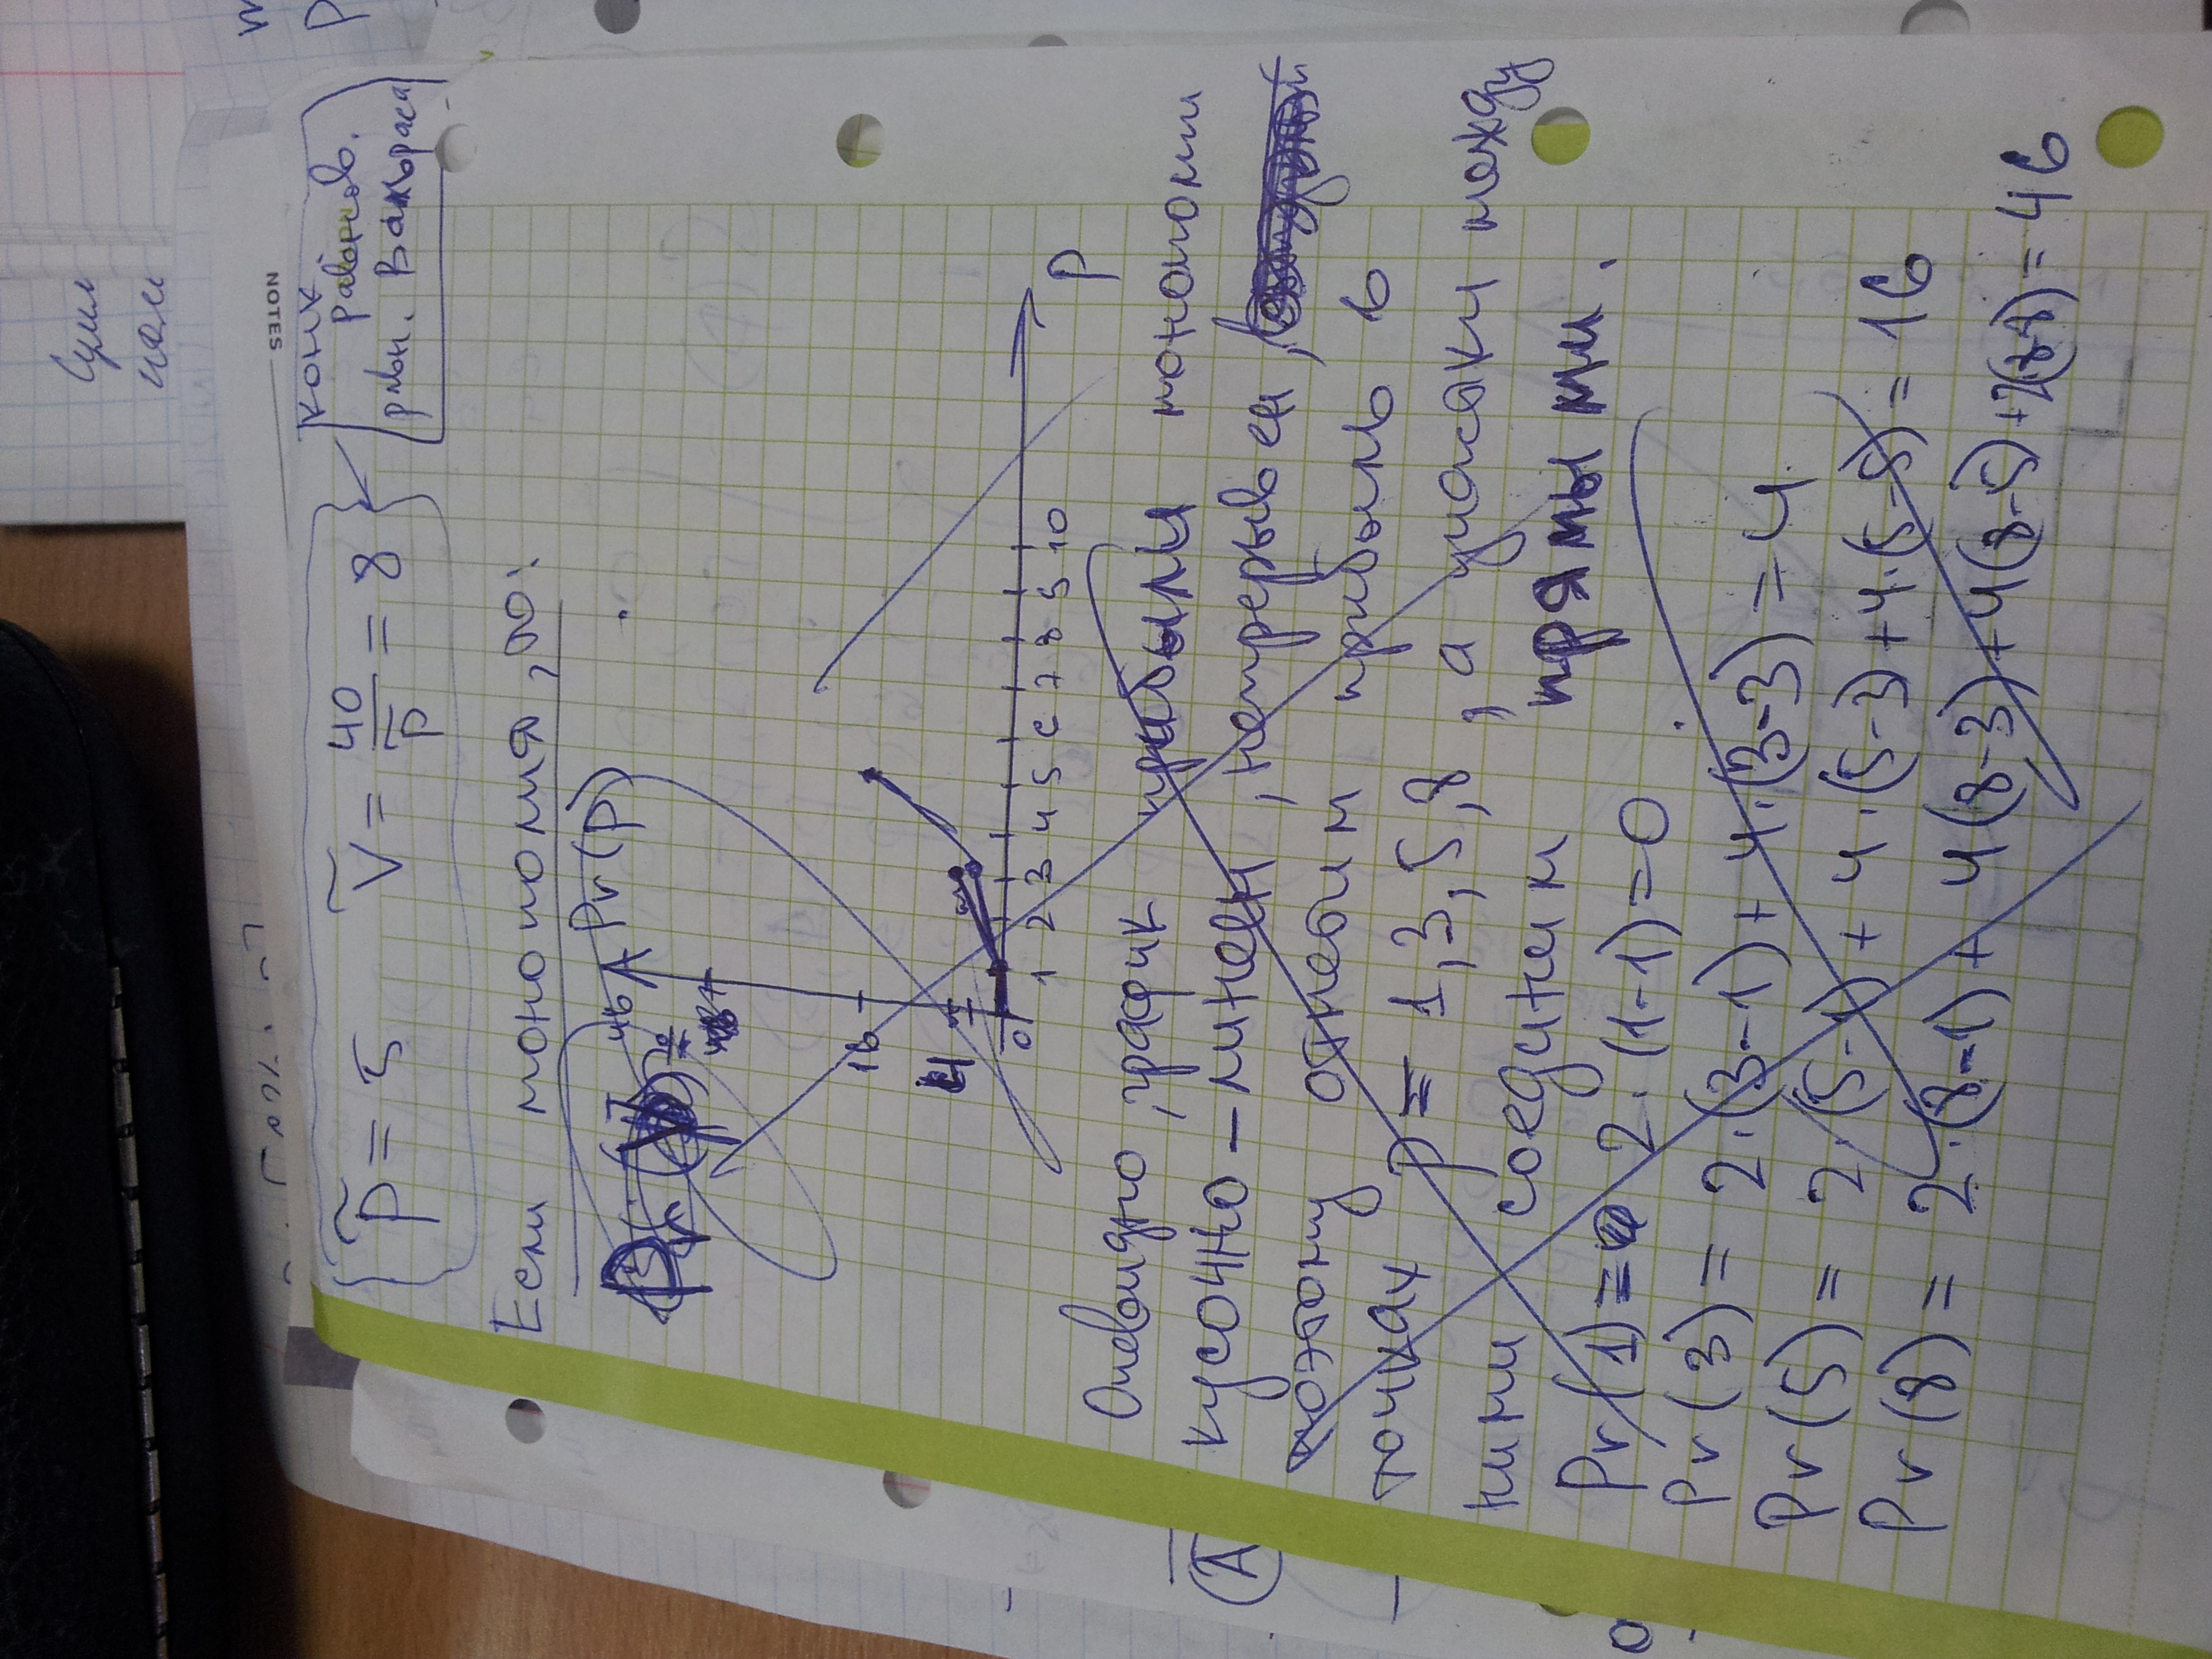 NOTES
P̃ = 5 Ṽ = 40/P̃ = 8
конк
равнов.
рын. Вальраса
Если монополия, то:
Pr(p)
46
16
4
0 1 2 3 4 5 6 7 8 9 10 P
Очевидно, график прибыли монополии
кусочно-линеен, непрерывен,
поэтому отметим прибыль в
точках P = 1,3,5,8, а участки между
ними соединим прямыми.
Pr(1) = 2·(1-1)=0
Pr(3) = 2·(3-1)+4·(3-3)=4
Pr(5) = 2·(5-1)+4·(5-3)+4·(5-5)=16
Pr(8) = 2·(8-1)+4(8-3)+4(8-5)+2(8-8)=46
A